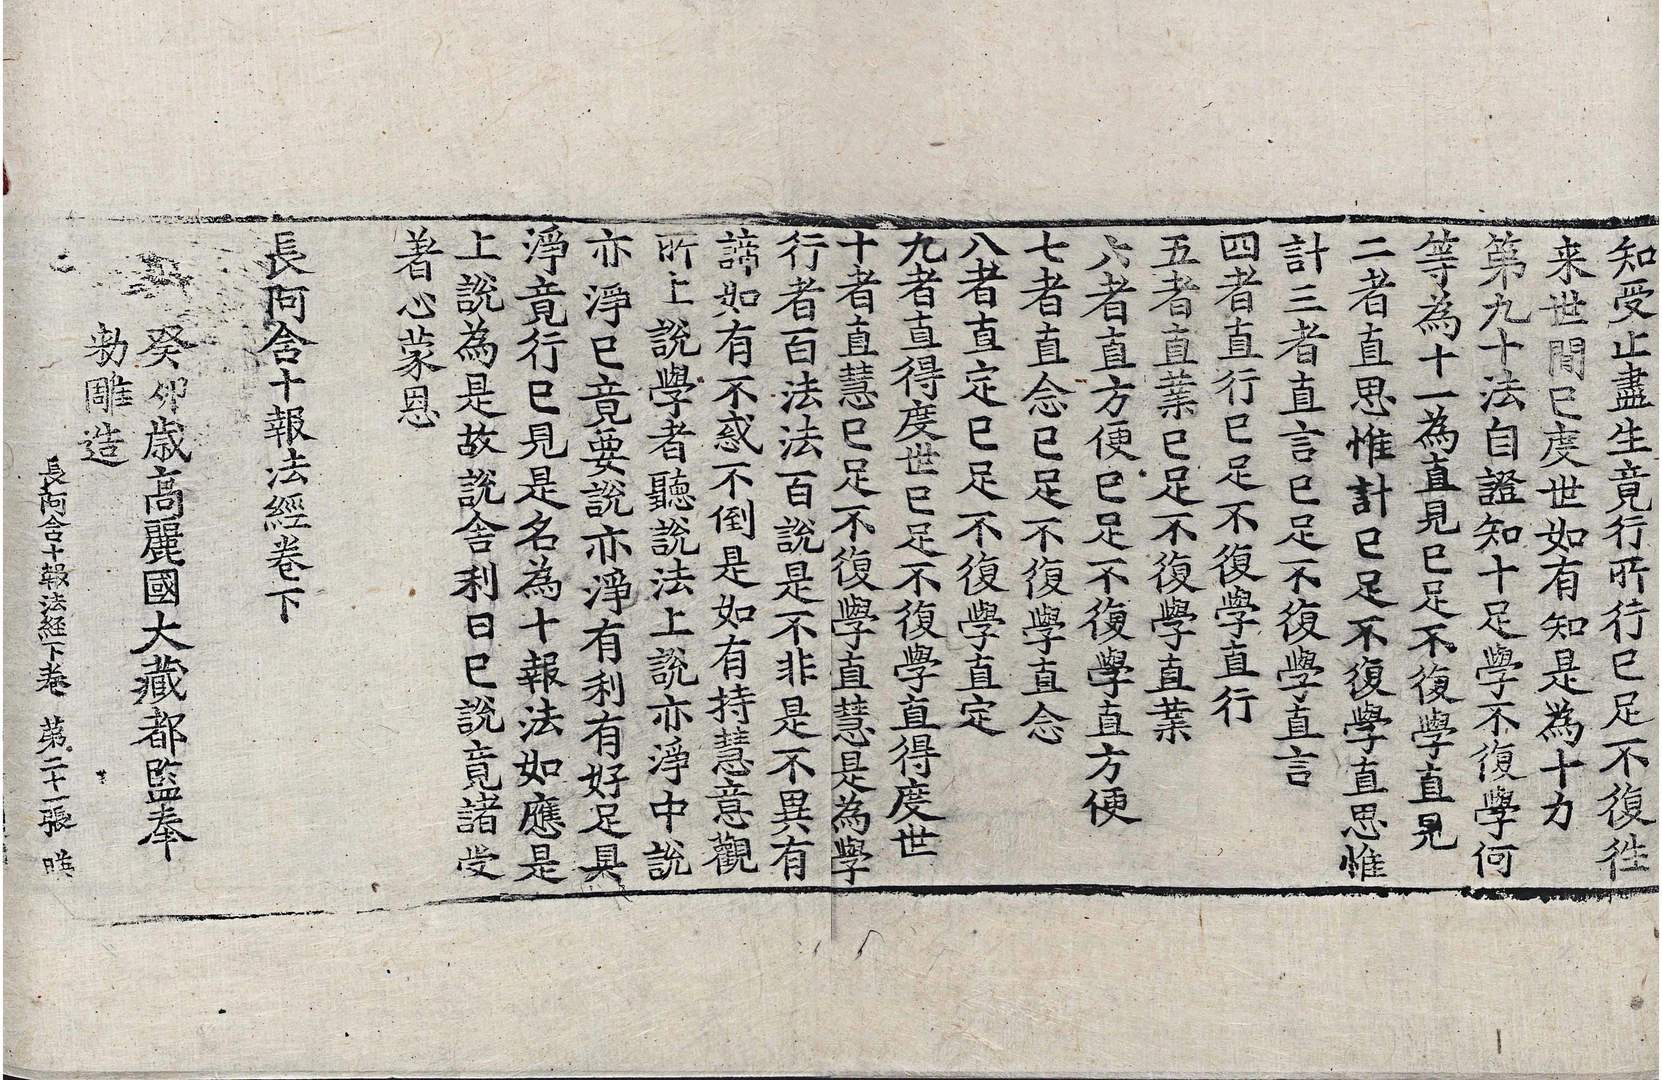 知受止盡生竟行所行已足不復往
来世間已度世如有知是為十力
第九十法自證知十足學不復學何
等為十一為直見已足不復學直見
二者直思惟計已足不復學直思惟
計三者直言已足不復學直言
四者直行已足不復學直行
五者直業已足不復學直業
六者直方便已足不復學直方便
七者直念已足不復學直念
八者直定已足不復學直定
九者直得度世已足不復學直得度世
十者直慧已足不復學直慧是為學
行者百法法百說是不非是不異有
諦如有不惑不倒是如有持慧意觀
所上說學者聽說法上說亦淨中說
亦淨已竟要說亦淨有利有好足具
淨竟行已見是名為十報法如應是
上說為是故說舍利曰已說竟諸受
著心蒙恩
長阿含十報法經卷下
癸卯歲高麗國大藏都監奉
勑雕造
長阿含十報法経下卷 第二十一張